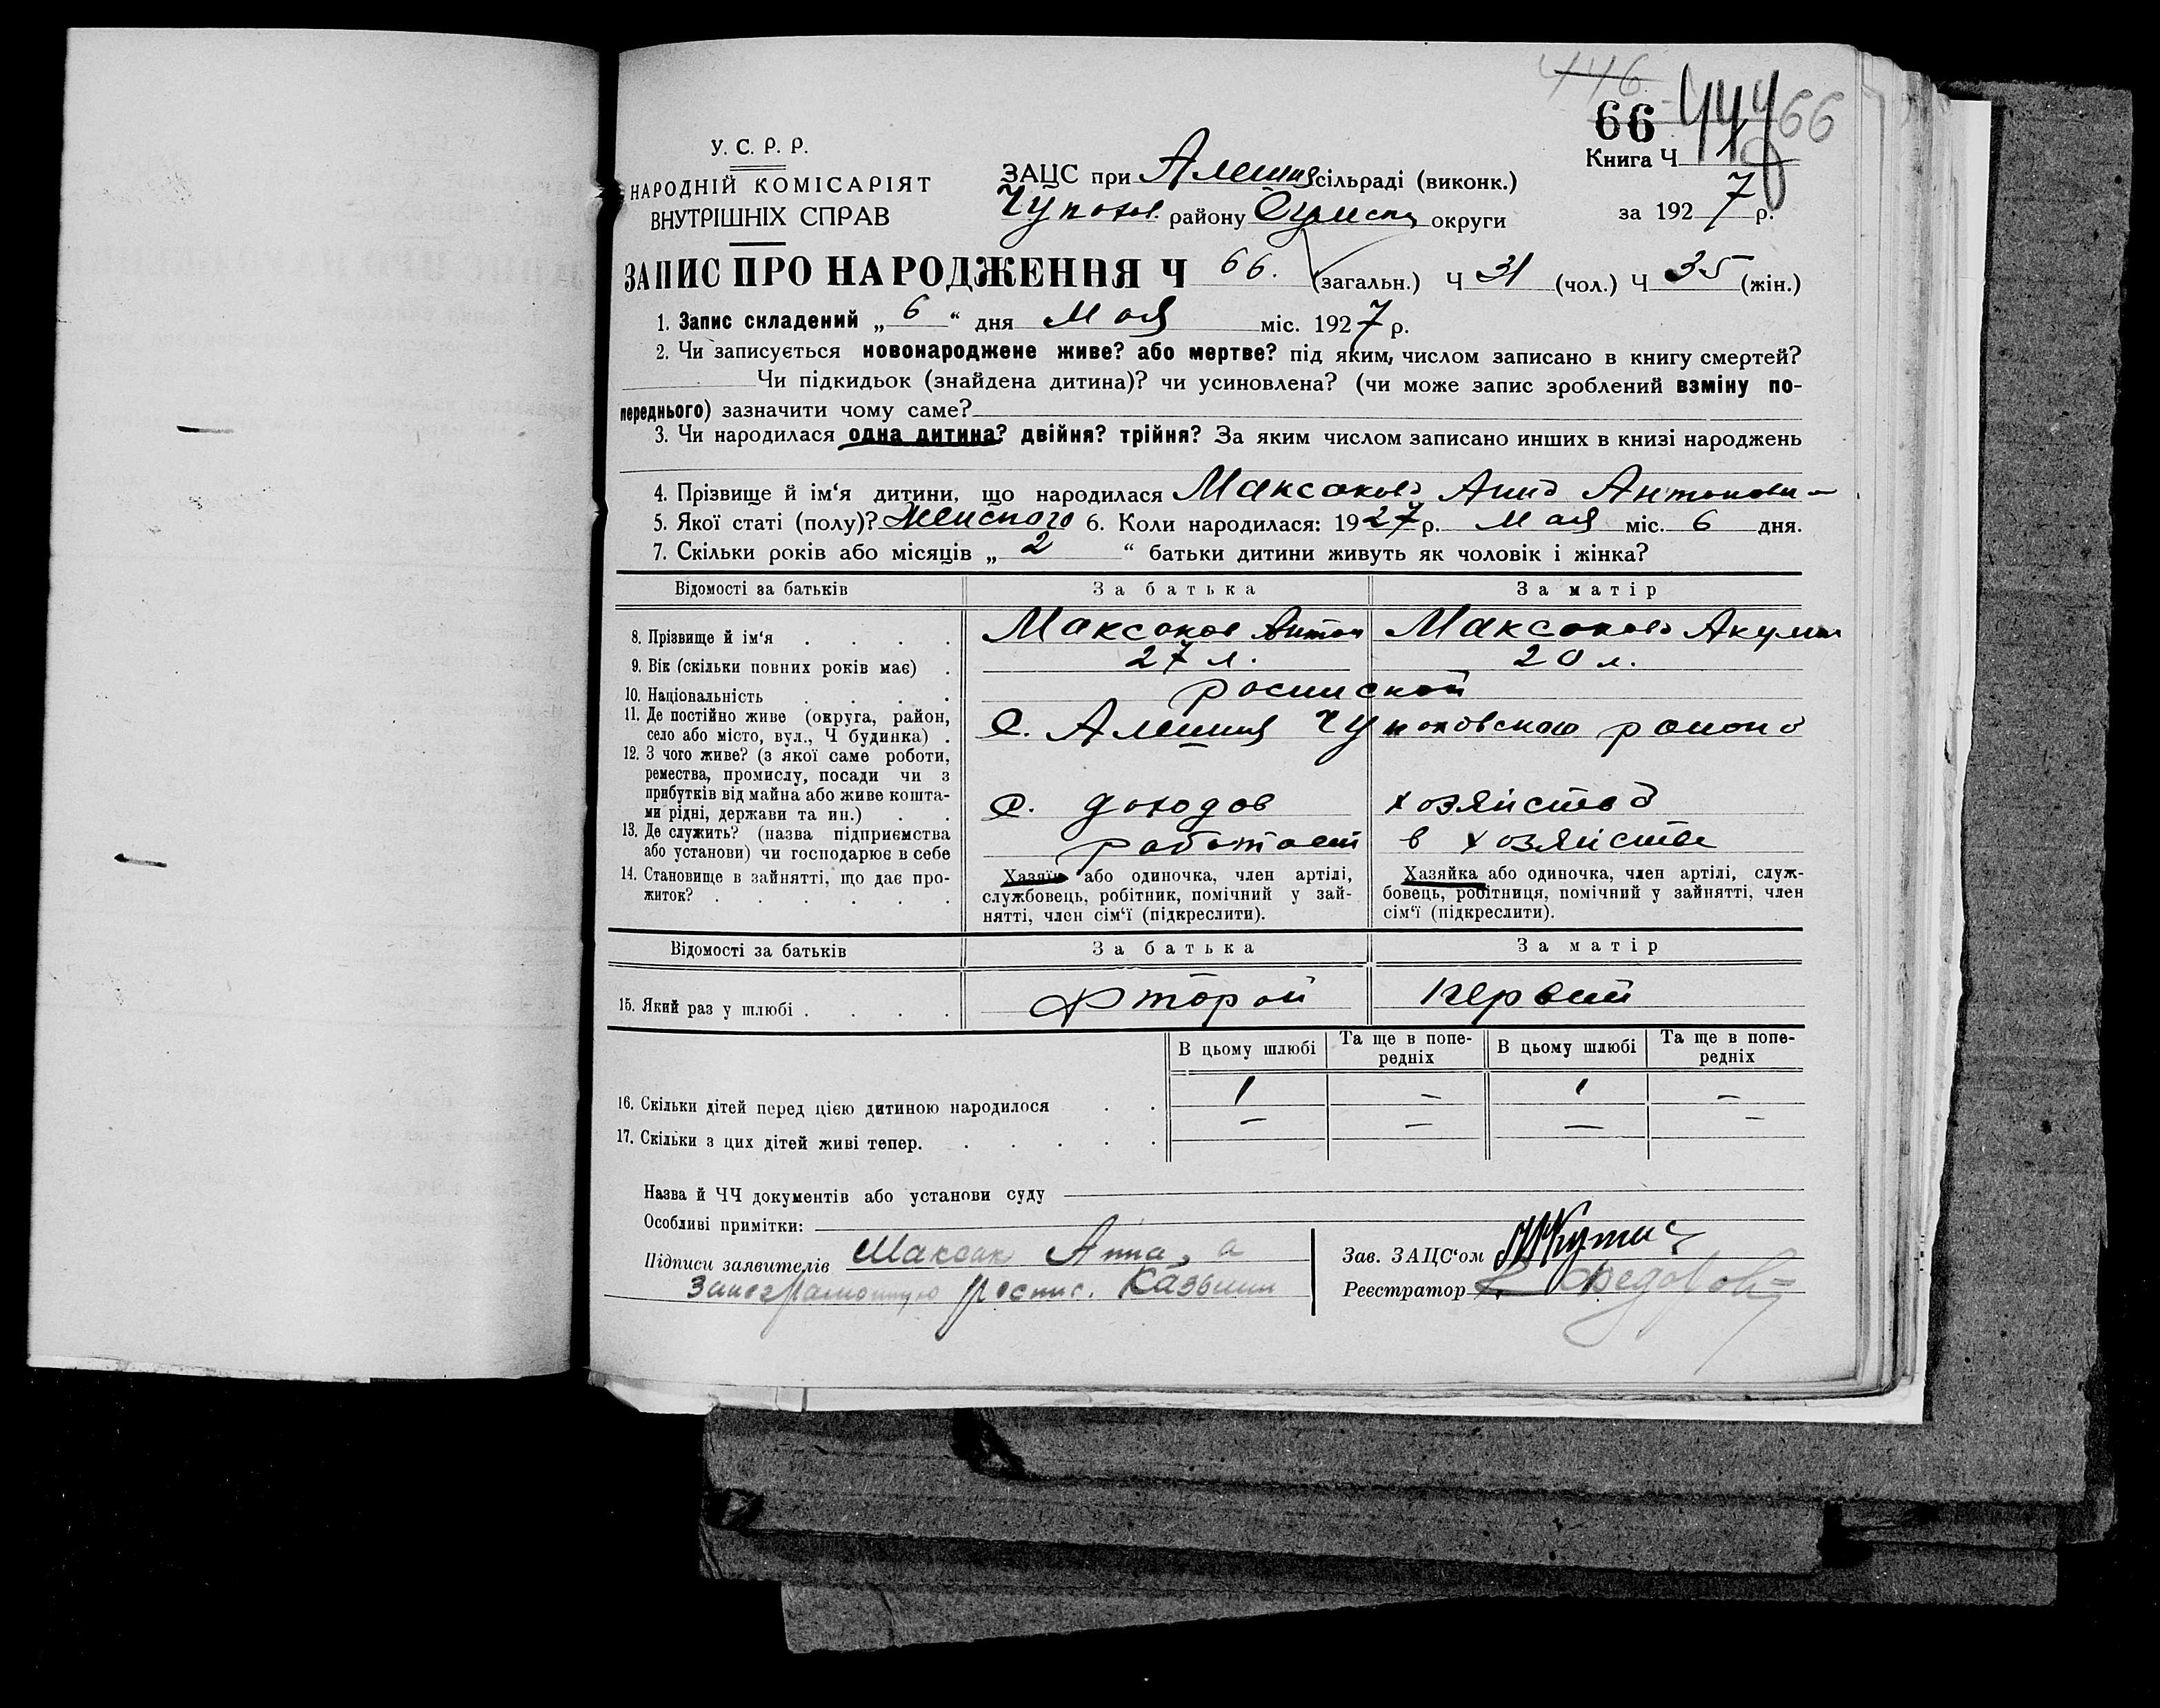 446
66 66
У. С. Р. Р.
НАРОДНІЙ КОМІСАРІЯТ
ВНУТРІШНІХ СПРАВ
ЗАЦС при сільраді (виконк.)
району округи
Книга Ч
за 1927 р.
ЗАПИС ПРО НАРОДЖЕННЯ Ч 66. (загальн.) Ч 31 (чол.) Ч 35 (жін.)
1. Запис складений „ 6 “ дня Мая міс. 1927 р.
2. Чи записується новонароджене живе? або мертве? під яким, числом записано в книгу смертей?
Чи підкидьок (знайдена дитина)? чи усиновлена? (чи може запис зроблений взміну по-
переднього) зазначити чому саме?
3. Чи народилася одна дитина? двійня? трійня? За яким числом записано инших в книзі народжень
4. Прізвище й ім‘я дитини, що народилася Максакова Анна
5. Якої статі (полу)? Женского 6. Коли народилася: 1927 р. Мая міс. 6 дня.
7. Скільки років або місяців „ 2 “ батьки дитини живуть як чоловік і жінка?
Відомості за батьків За батька За матір
8. Прізвище й ім‘я . . . . Максаков Антон Максакова
9. Вік (скільки повних років має) . 27 л. 20 л.
10. Національність . . . .
11. Де постійно живе (округа, район,
село або місто, вул., Ч будинка) . С. района
12. З чого живе? (з якої саме роботи,
ремества, промислу, посади чи з
прибутків від майна або живе кошта-
ми рідні, держави та ин.) . . С. доходов хозяйства
13. Де служить? (назва підприємства
або установи) чи господарює в себе работает в хозяйстве
14. Становище в зайнятті, що дає про-
житок? . . . . . .
Хазяїн або одиночка, член артілі,
службовець, робітник, помічний у зай-
нятті, член сім‘ї (підкреслити).
Хазяйка або одиночка, член артілі, служ-
бовець, робітниця, помічний у зайнятті, член
сім‘ї (підкреслити).
Відомості за батьків За батька За матір
15. Який раз у шлюбі . . . . второй первый
В цьому шлюбі Та ще в попе-
редніх В цьому шлюбі Та ще в попе-
редніх
16. Скільки дітей перед цією дитиною народилося . . 1 — 1 —
17. Скільки з цих дітей живі тепер. . . . . . — — — —
Назва й ЧЧ документів або установи суду
Особливі примітки:
Підписи заявителів Анна, а
Зав. ЗАЦС‘ом
Реєстратор